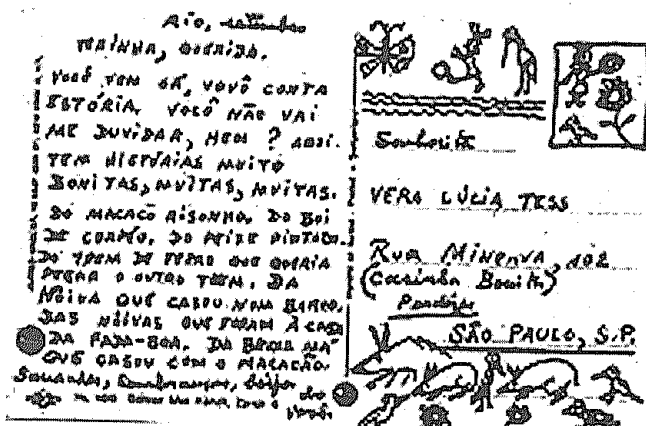 Rio,
VERINHA, QUERIDA.
VOCÊ VEM CÁ, VOVÔ CONTA
ESTÓRIA. VOCÊ NÃO VAI
ME DUVIDAR, HEM ? AQUI.
TEM HISTÓRIAS MUITO
BONITAS, MUITAS, MUITAS.
DO MACACO RISONHO. DO BOI
DE CORPÃO. DO PEIXE PINTADO.
DO TREM DE FERRO QUE QUERIA
PEGAR O OUTRO TREM. DA
NOIVA QUE CASOU NUM BARCO.
DAS NOIVAS QUE FORAM À CASA
DA FADA-BOA. DA
QUE CASOU COM O MACACÃO.
Saudades,
do
Vovô.
Senhorita
VERA LÚCIA TESS
RUA MINERVA, 102
(Casinha Bonita)
Perdizes
SÃO PAULO, S.P.